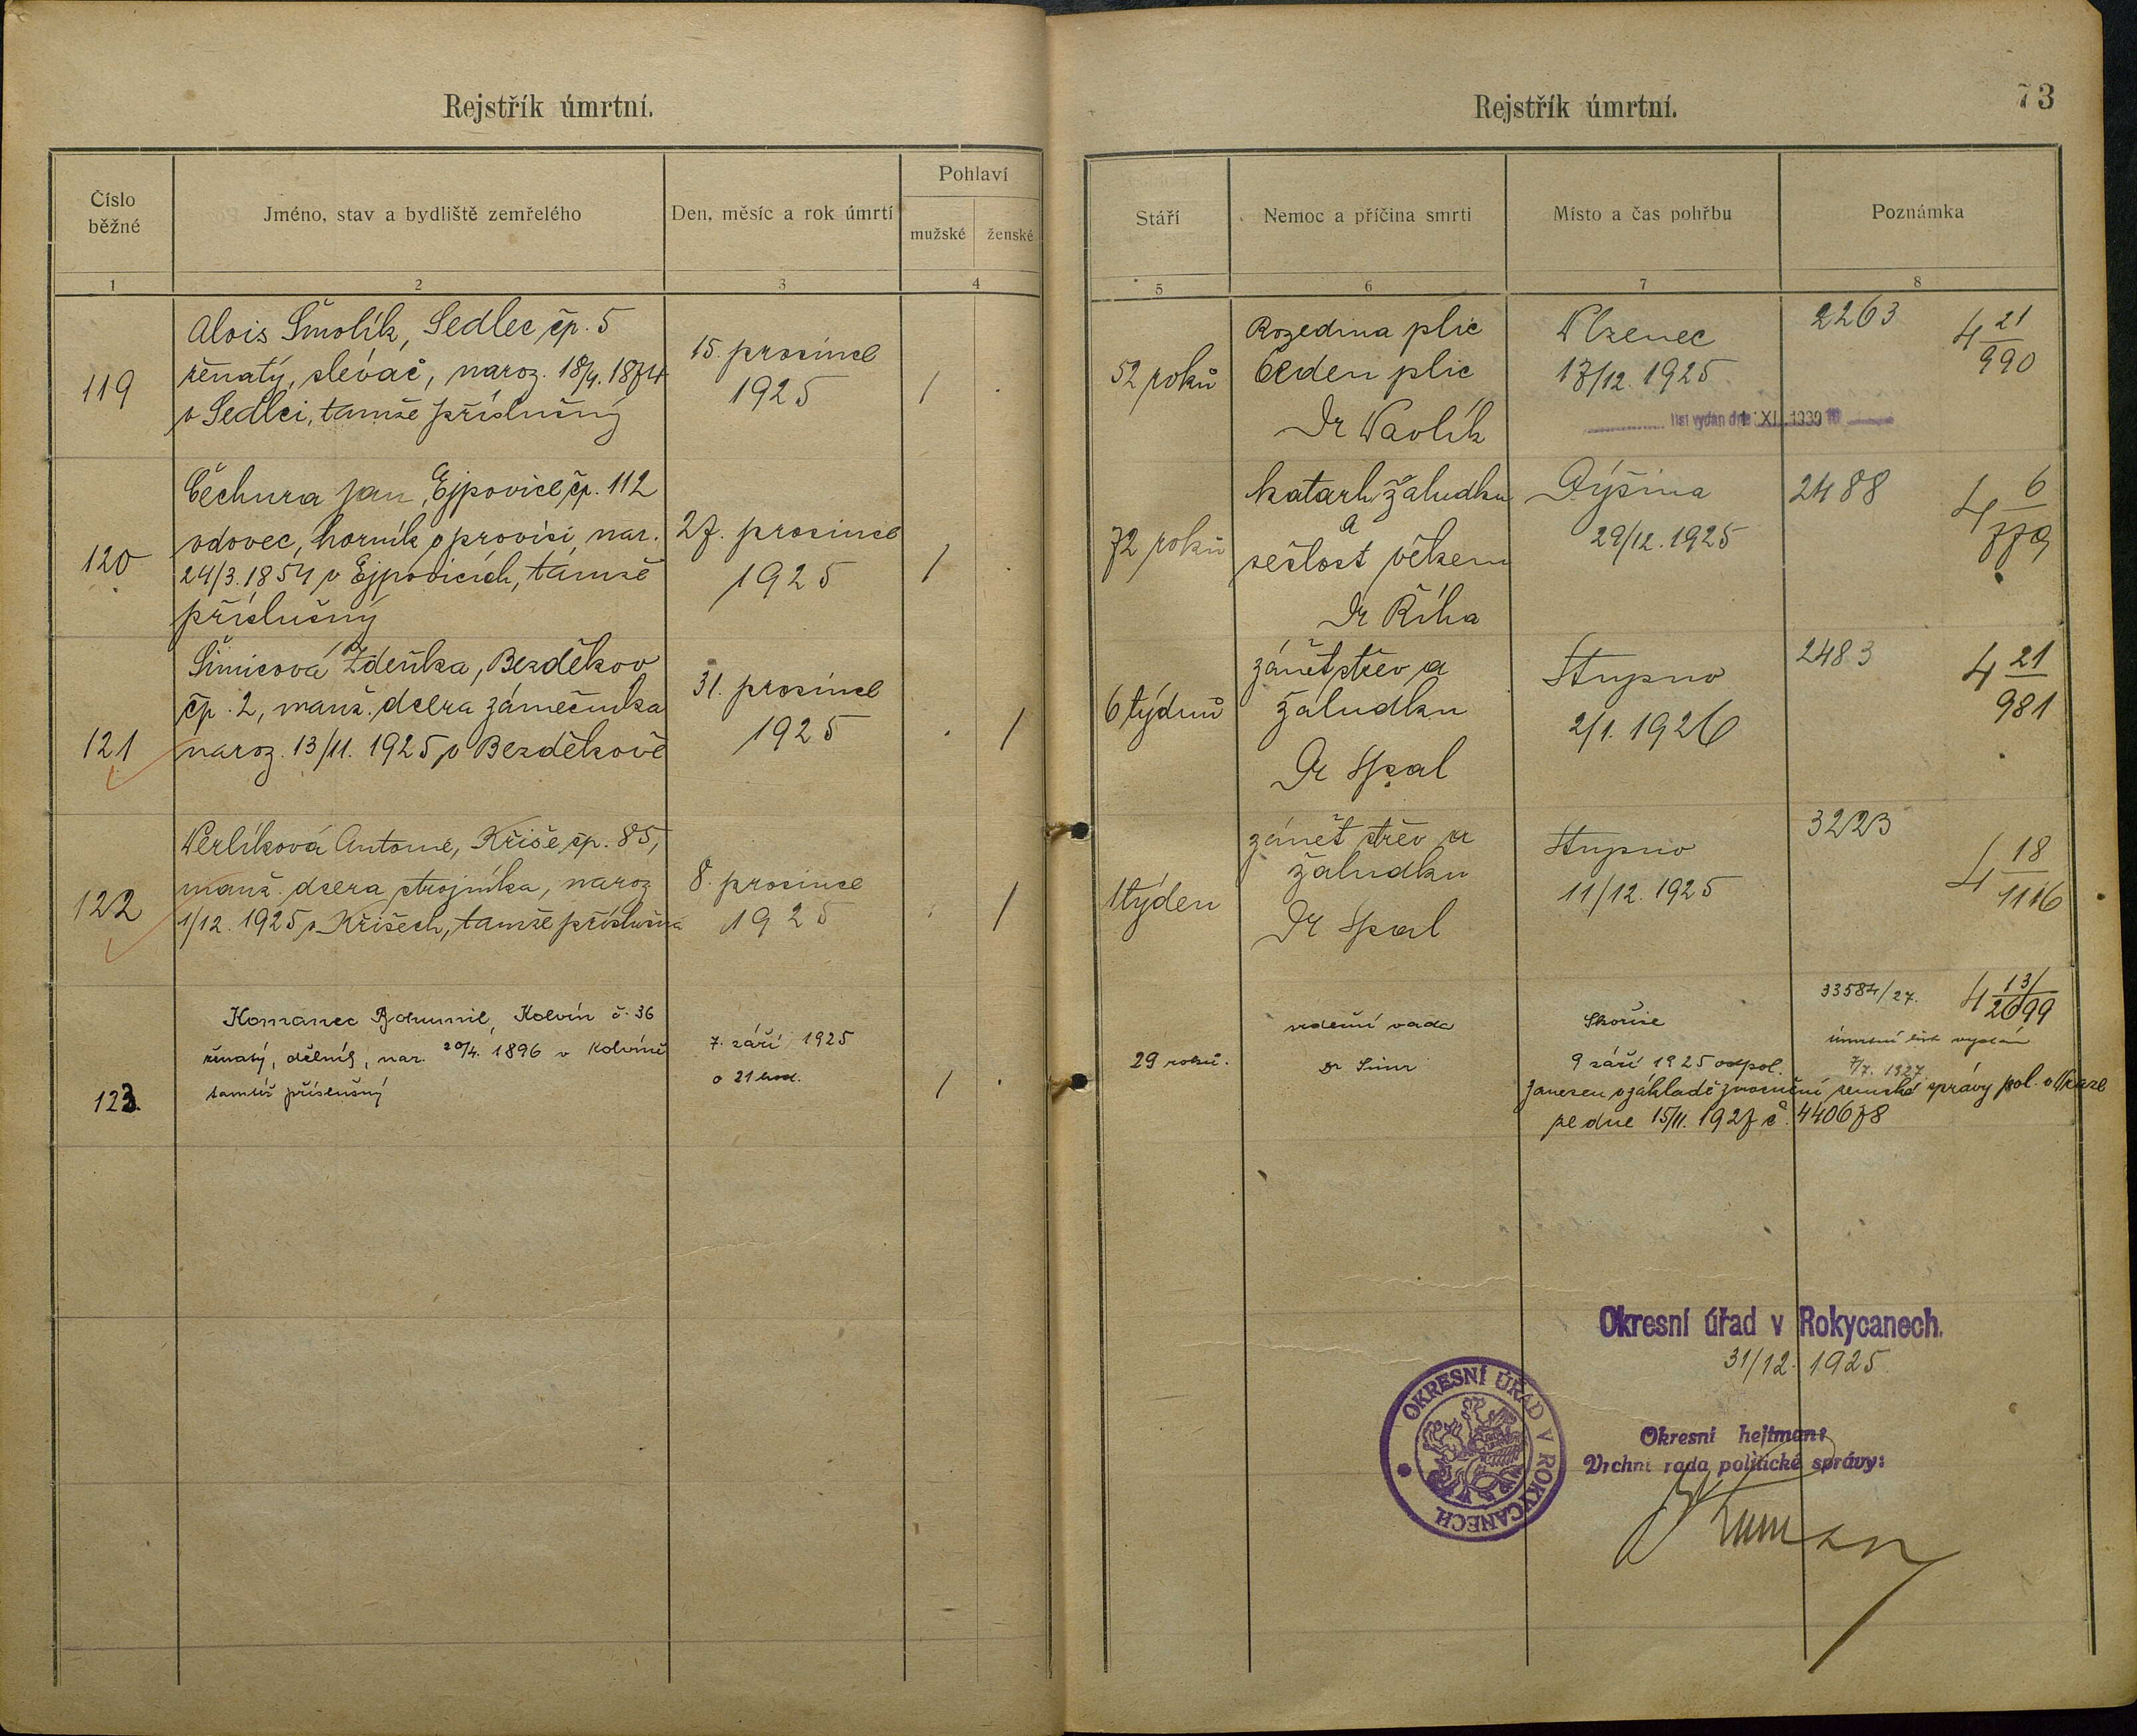 Rejstřík úmrtní.
Číslo běžné
Jméno, stav a bydliště zemřelého
Den, měsíc a rok úmrtí
Pohlaví
mužské
ženské
1
2
3
4
119
Alois Šmolík, Sedlec čp. 5
ženatý, slévač, naroz. 18/4. 1874
v Sedlci, tamže příslušný
15. prosince
1925
/
120
Čechura Jan, Ejpovice čp. 112
vdovec, horník o provisi, nar.
24/3. 1854 v Ejpovicích, tamže
příslušný
27. prosince
1925
/
121
Šimicová Zdeňka, Bezděkov
čp. 2, manž. dcera zámečníka
naroz. 13/11. 1925 v Bezděkově
31. prosince
1925
/
122
Antonie, Kříše čp. 85,
manž. dcera strojníka, naroz
1/12. 1925 v Kříšech, tamže příslušná
8. prosince
1925
/
123.
Komanec Bohumil, Kolvín č. 36
ženatý, dělník, nar. 20/4. 1896 v Kolvíně
tamtéž příslušný
7. září 1925
o 21 hod.
/
Rejstřík úmrtní.
73
Stáří
Nemoc a příčina smrti
Místo a čas pohřbu
Poznámka
5
6
7
8
52 roků
Rozedma plic
Oedem plic
Dr Pavlík
Plzenec
17/12. 1925
list vydán dne XI. 1939
2263
4 21/990
72 roků
katarh žaludku
a
sešlost věkem
Dr Říha
Dýšina
29/12. 1925
2488
4 6/779
6 týdnů
zánět střev a
žaludku
Dr Spal
Stupno
2/1. 1926
2483
4 21/981
1 týden
zánět střev a
žaludku
Dr Spal
Stupno
11/12. 1925
3223
4 18/1116
29 roků.
srdeční vada
Dr
Skořice
9 září 1925 odpol.
33584/27.
4 13/2699
úmrtní list vydán
7/7. 1927
Zanesen v základě zmocnění zemské správy pol. v Praze
ze dne 15/11. 1927 č. 440678
Okresní úřad v Rokycanech.
31/12. 1925
OKRESNÍ ÚŘAD V ROKYCANECH
Okresní hejtman:
Vrchní rada politické správy: